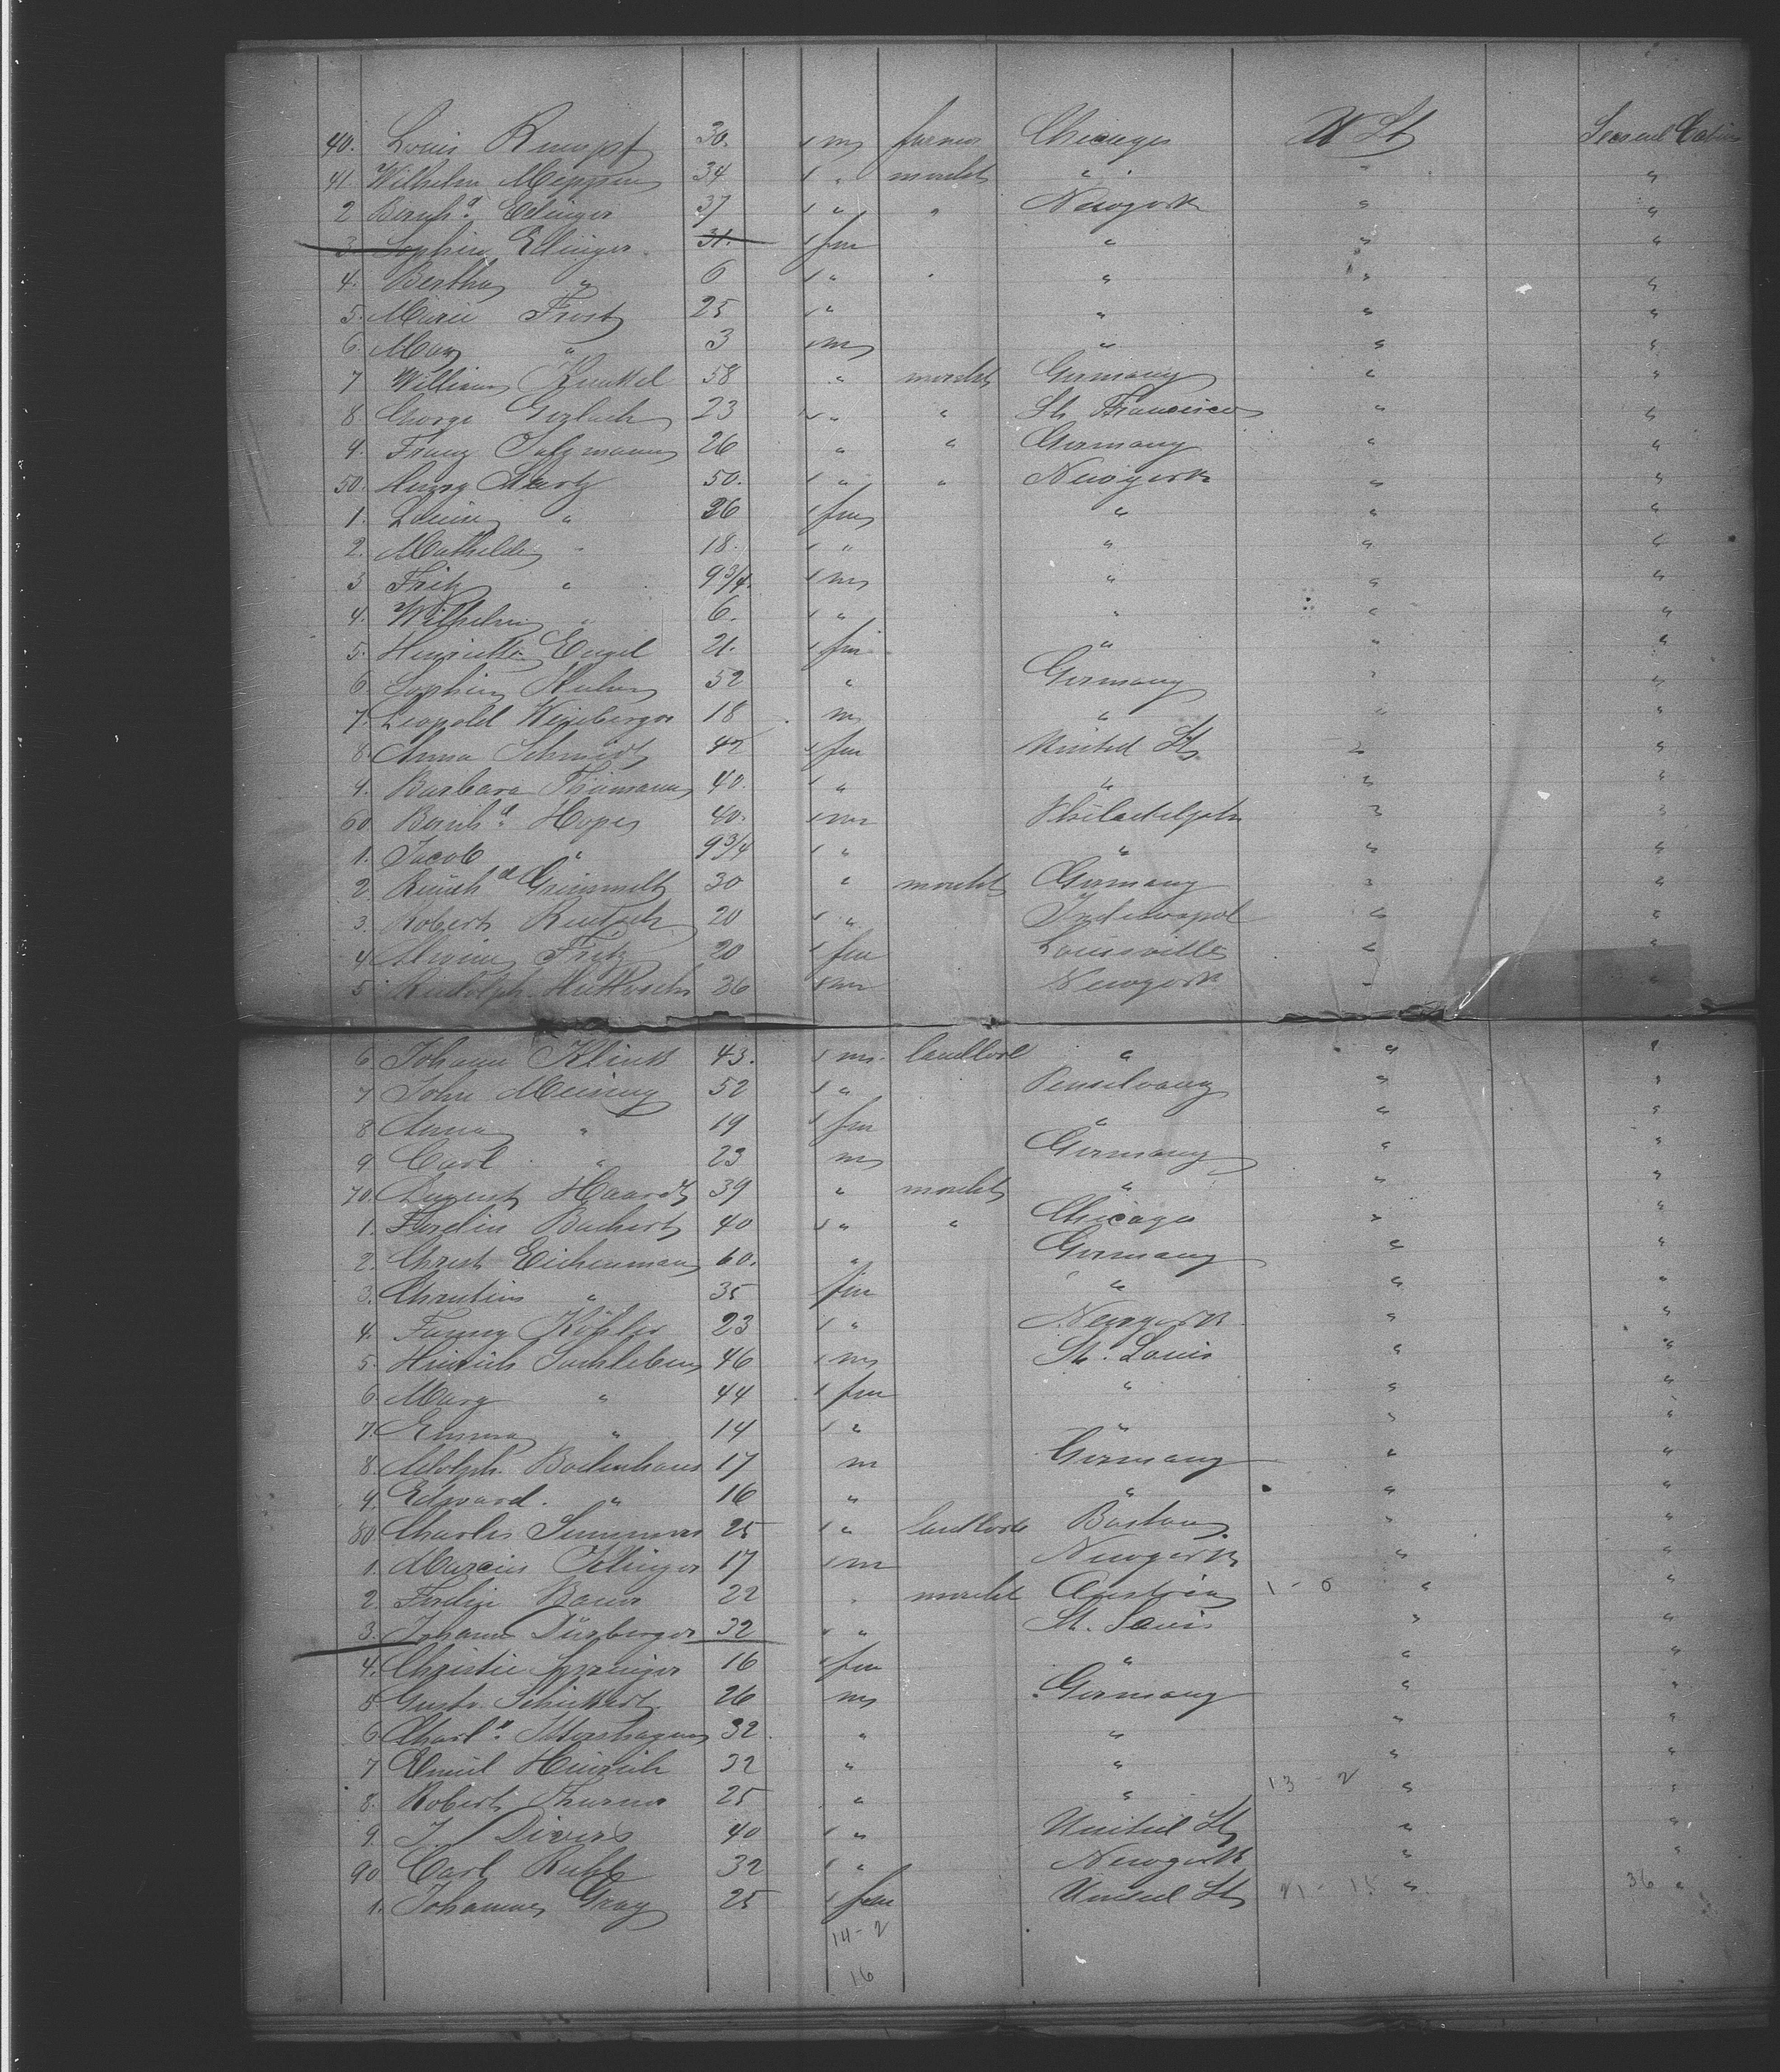 40. Louis Rumpf 30. 1 m farmer Chicago U St Second Cabin
41. Wilhelm 34 1 " merchdt " . " "
2 Bernhd. Edinger 37 1 " " Newyork " "
3 Sophia Edinger. 31. 1 fm " " "
4. Bertha " 6 1 " " " "
5. Marie Frost 25 1 " " " "
6. Max " 3 1 m " " "
7 William Kunkel 58 " merchdt Germany " "
8. George Gerlach 23 1 " " St. Francisco " "
9. Franz Salzmann 26 " " Germany " "
50. Henry Startz 50. 1 " " Newyork " "
1. Louise " 26 1 fm " " "
2. Mathilde " 18. 1 " " " "
3 Fritz " 9 3/4. 1 m " " "
4. Wilhelm " 6. 1 " " " "
5. Henriette Engel 21. 1 fm " " "
6. Sophia 52 " Germany " "
7. Leopold Weinberger 18 m " " "
8. Anna Schmidt 42 1 fm United St " "
9. Barbara Thomann 40. 1 " " " "
60 Bernhd. Hopes 40. 1 m Philadelph " "
1. Jacob " 9 3/4 1 " " " "
2. Reinhd Grimmelt 30 " merchdt Germany " "
3. Robert Rentsch 20 1 " Indianapol " "
4 Alvine Fritz 20 1 fm Louisville " "
5 Rudolph 26 1 m Newyork " "
6. Johann Klink 43. 1 m. landlord " " "
7 John Meining 52 1 " Penselvany " "
8 Anna " 19 1 fm " " "
9 Carl " 23 m Germany " "
70. August Haardt 39 " merchdt " " "
1. Ferdin Bachert 40 1 " " Chicago " "
2. Christ Eichenmann 60. " Germany " "
3. Christine " 35 fm " " "
4. Fanny Köhler 23 1 " Newyork " "
5. Heinrich Sachsleben 46 1 m St. Louis " "
6. Mary " 44 1 fm " " "
7. Emma " 14 1 " " " "
8. Adolph. Bodenhaus 17 m Germany " "
9. Edward. " 16 " " " "
80 Charles Simmons 25 1 " landlord Boston " "
1. Edinger 17 1 m Newyork " "
2. Ferdin Bauer 22 merchdt Austria 1 - 0 " "
3. Johann Dürberger 32 1 " St. Louis " "
4. Christie Springer 16 1 fm " " "
5 Gustv. Schickert 26 m Germany " "
6 Charls. 32 " " " "
7 Emil Heinrich 32 " " " "
8. Robert Thurner 25 " " 13 - 2 " "
9. J. Divers 40 1 " United St " "
90 Carl Ruhl 32 1 " Newyork " "
1. Johanne Gray 25 1 fm United St 21 - 15 " 36 "
14 - 2
16